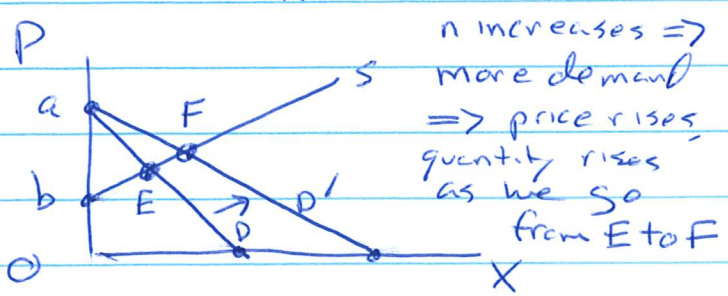 P
a
b
O
E
F
S
D
D'
X
n increases =>
more demand
=> price rises,
quantity rises
as we go
from E to F